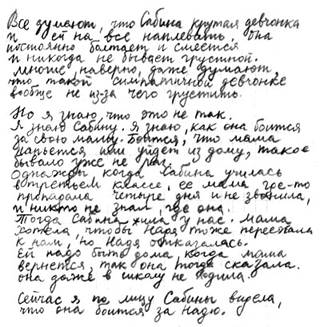 Все думают, что Сабина крутая девчонка
и ей на всё наплевать. она
постоянно болтает и смеётся
и никогда не бывает грустной.
многие, наверно, даже думают,
что такой симпатичной девчонке
вообще не из-за чего грустить.
Но я знаю, что это не так.
Я знаю Сабину. Я знаю, как она боится
за свою маму. Боится, что мама
напьётся или уйдёт из дому, такое
бывало уже не раз.
Однажды когда Сабина училась
в третьем классе, её мама где-то
пропадала четыре дня и не звонила,
и никто не знал, где она.
Тогда Сабина жила у нас. Мама
хотела, чтобы Надя тоже переехала
к нам, но Надя отказалась.
Ей надо быть дома, когда мама
вернётся, так она тогда сказала.
она даже в школу не ходила.
Сейчас я по лицу Сабины видела,
что она боится за Надю.